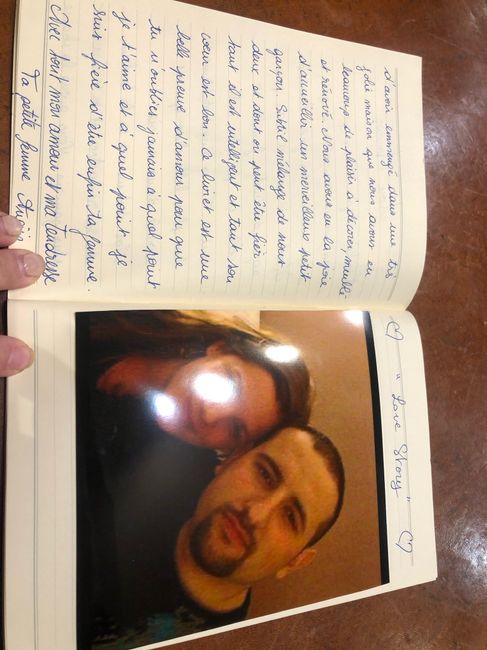 d'avoir emménagé dans une très
jolie maison que nous avons eu
beaucoup de plaisir à décorer, meubler
et rénover. Nous avons eu la joie
d'accueillir un merveilleux petit
garçon. Subtil mélange de nous
deux et dont on peut être fier
tant il est intelligent et tant son
coeur est bon. Ce livret est une
belle preuve d'amour pour que
tu n'oublies jamais à quel point
je t'aime et à quel point je
suis fière d'être enfin ta femme.
Avec tout mon amour et ma tendresse
Ta petite femme
♡ "Love Story" ♡